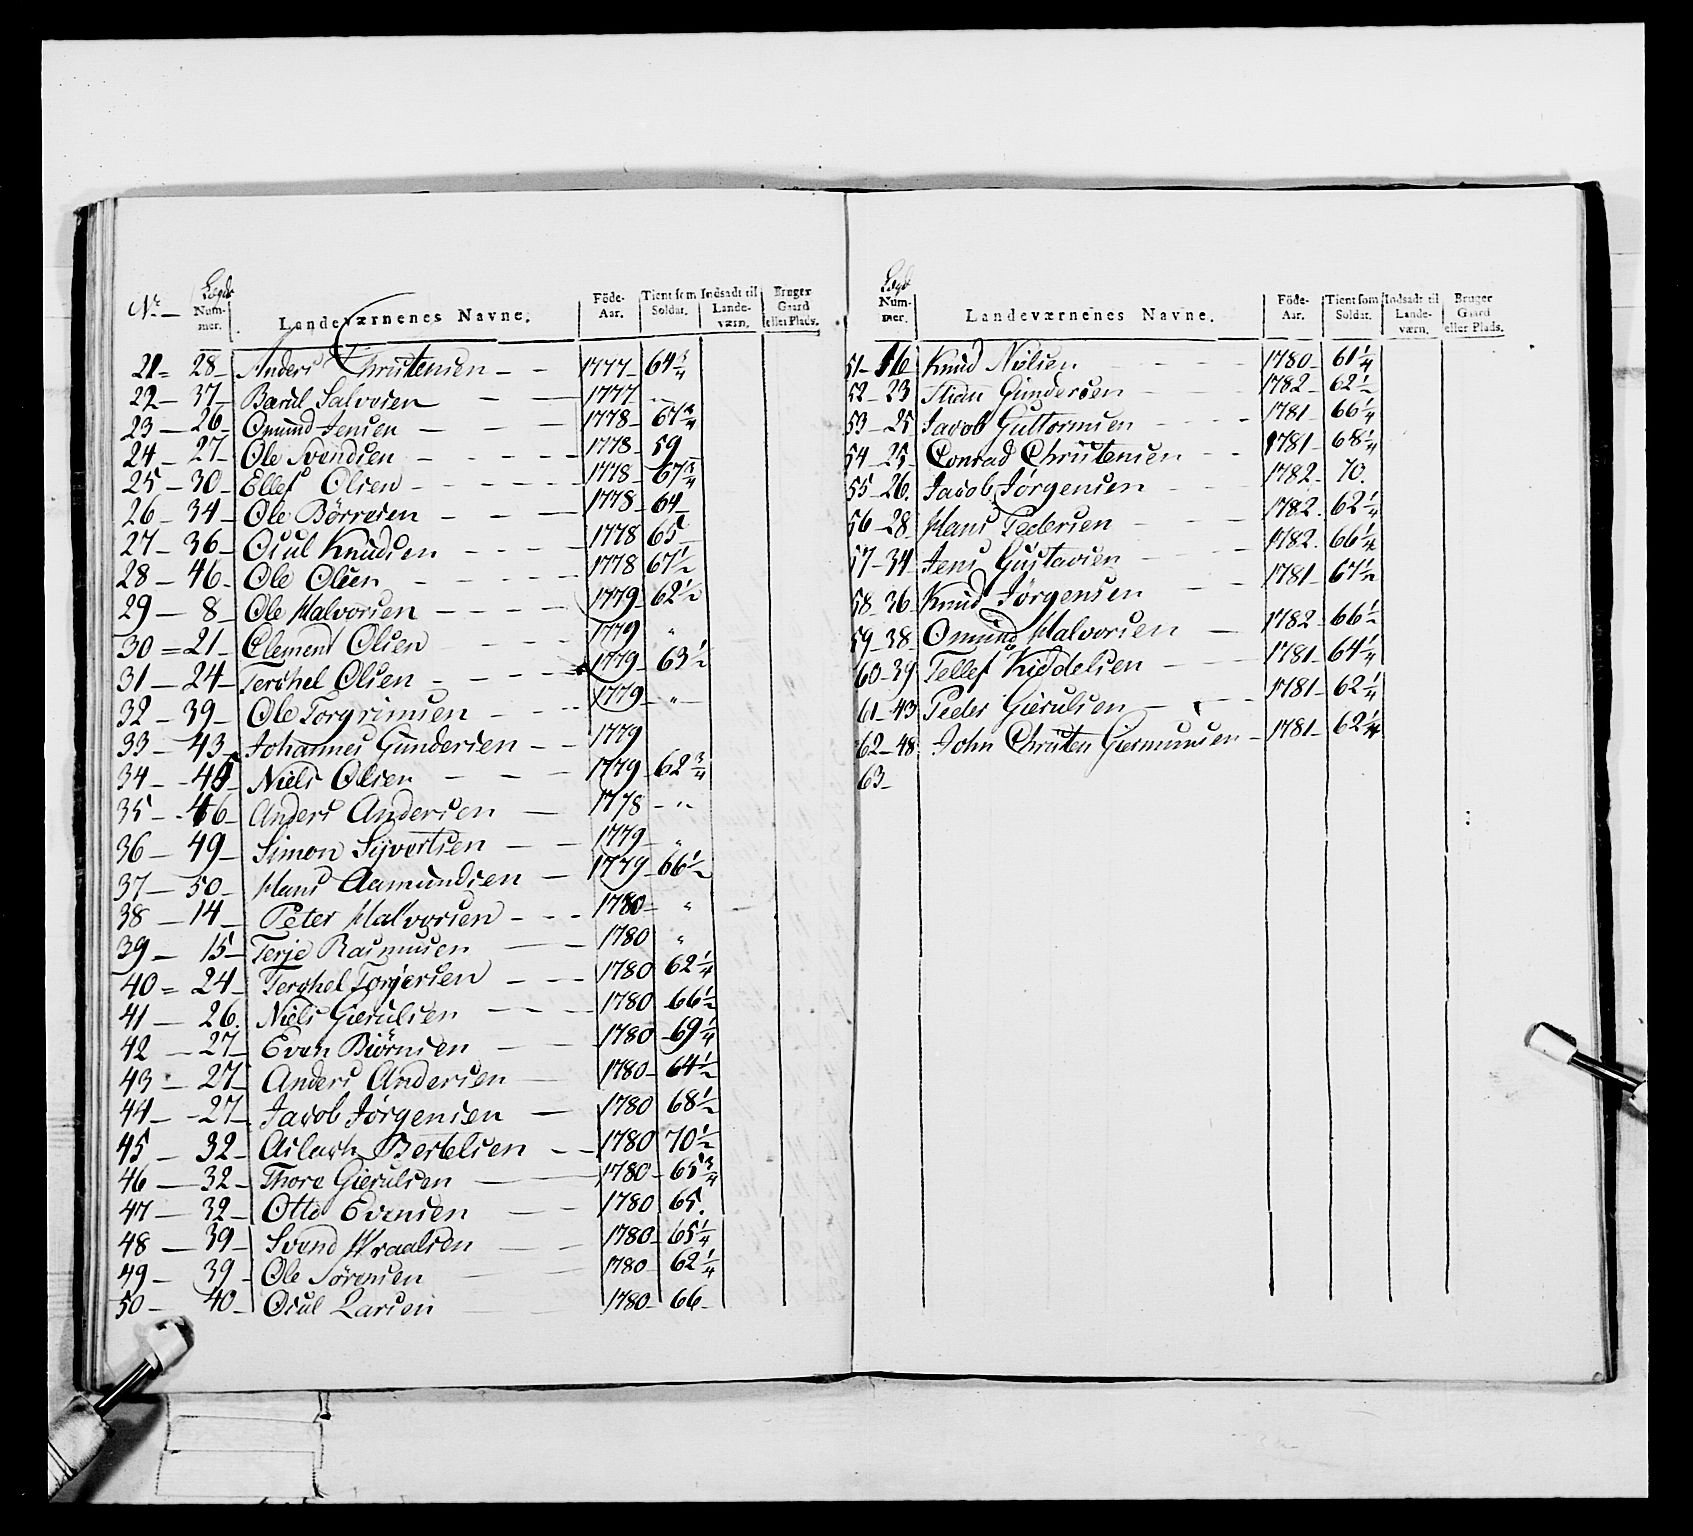 No Lægds Nummer. Landeværnenes Navne. Föde-Aar. Tient som Soldat. Indsadt til Landeværn. Bruger Gaard eller Plads.
21 = 28 - Anders Christensen - - 1777 - 64 3/4
22 - 37 - Barul Salvesen - - 1777 - "
23 - 26 - Omund Jensen - - - 1778 - 67 3/4
24 - 27 - Ole Svendsen - - - 1778 - 59
25 - 30 - Ellef Olsen - - - 1778 - 67 3/4
26 - 34 - Ole Börresen - - - 1778 - 64
27 - 36 - Osul Knudsen - - - 1778 65
28 - 46 - Ole Olsen - - - 1778 67 1/2
29 - 8 - Ole Halvorsen - - - 1779 - 62 1/2
30 = 21 - Clement Olsen - - 1779 "
31 - 24 - Terchel Olsen - - - 1779 - 63 1/2
32 - 39 - Ole Torgrimsen - - - 1779 - "
33 - 43 - Johannes Gundersen - - 1779
34 - 45 - Niels Olsen - - - 1779 - 62 3/4
35 - 46 - Anders Andersen - 1778 - "
36 - 49 - Simon Sÿvertsen - - 1779 - "
37 - 50 - Hans Aamundsen - 1779 - 66 1/2
38 - 14 - Peter Halvorsen - - - 1780 - "
39 - 15 - Terje Rasmusen - - 1780 "
40 = 24 - Terchel Torjersen - - - 1780 62 1/4
41 - 26. Niels Gierulsen - - - 1780 66 1/2
42 - 27 - Even Biörnsen - - - 1780 - 69 1/4
43 - 27 - Anders Andersen - 1780 - 64 1/2
44 - 27 - Jacob Jörgensen - 1780 68 1/2
45 32 - Aslach Bertelsen - - 1780 70 1/2
46 - 32 - Thore Gierulsen - - 1780 - 65 3/4
47 - 32 - Otto Evensen - - 1780 65.
48 - 39 - Svend Wraalsen - - 1780 - 65 1/4
49 - 39 - Ole Sörensen - - 1780 62 1/4
50 - 40 - Osul Larsen - - 1780 - 66 -
Lægd Nummer. Landeværnenes Navne. Föde-Aar. Tient som Soldat. Indsadt til Landeværn. Bruger Gaard eller Plads.
51 - 16 Knud Nielsen - - - 1780 - 61 1/4
52 - 23 Stian Gundersen - - 1782 - 62 1/2
53 - 25 Jacob Guttormsen - - - 1781 - 66 1/4
54 - 25 - Conrad Christensen - - 1781 - 68 1/4
55 - 26. Jacob Jörgensen - - - 1782 - 70.
56 - 28. Hans Pedersen - - - 1782. 62 1/4
57 - 34 - Jens Gustavsen - - - 1782. 66 1/4
58 - 36. Knud Jörgensen - - 1781 - 67 1/2
59 - 38. Omund Halvorsen - 1782 - 66 1/2
60 - 39 Tellef Kiddelsen - - - 1781 - 64 1/4
61 - 43 Peder Gierulsen - - - 1781 - 62 1/4
62 - 48 John Christen Giermundsen - 1781 - 62 1/4
63 -